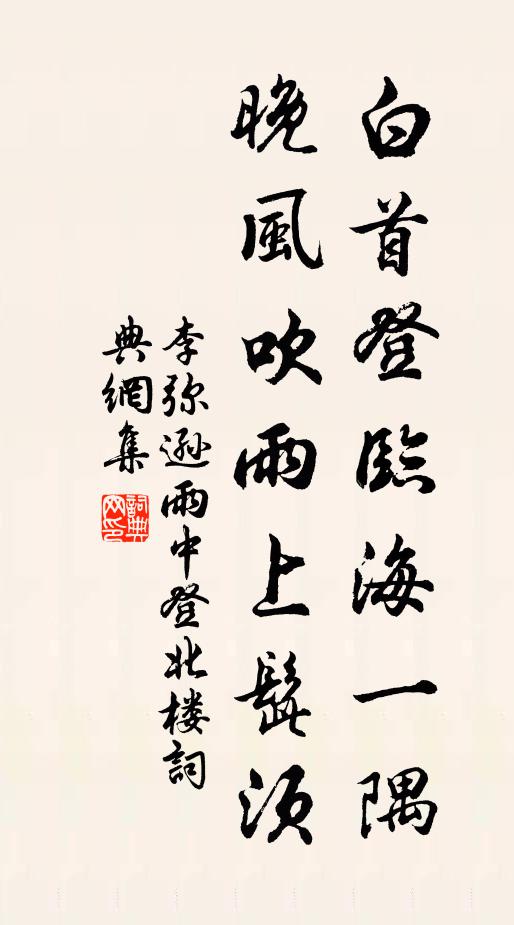 白首登臨海一隅
晚風吹雨上髭須
李弥遜雨中登北楼詞
典網集
詞典
网印